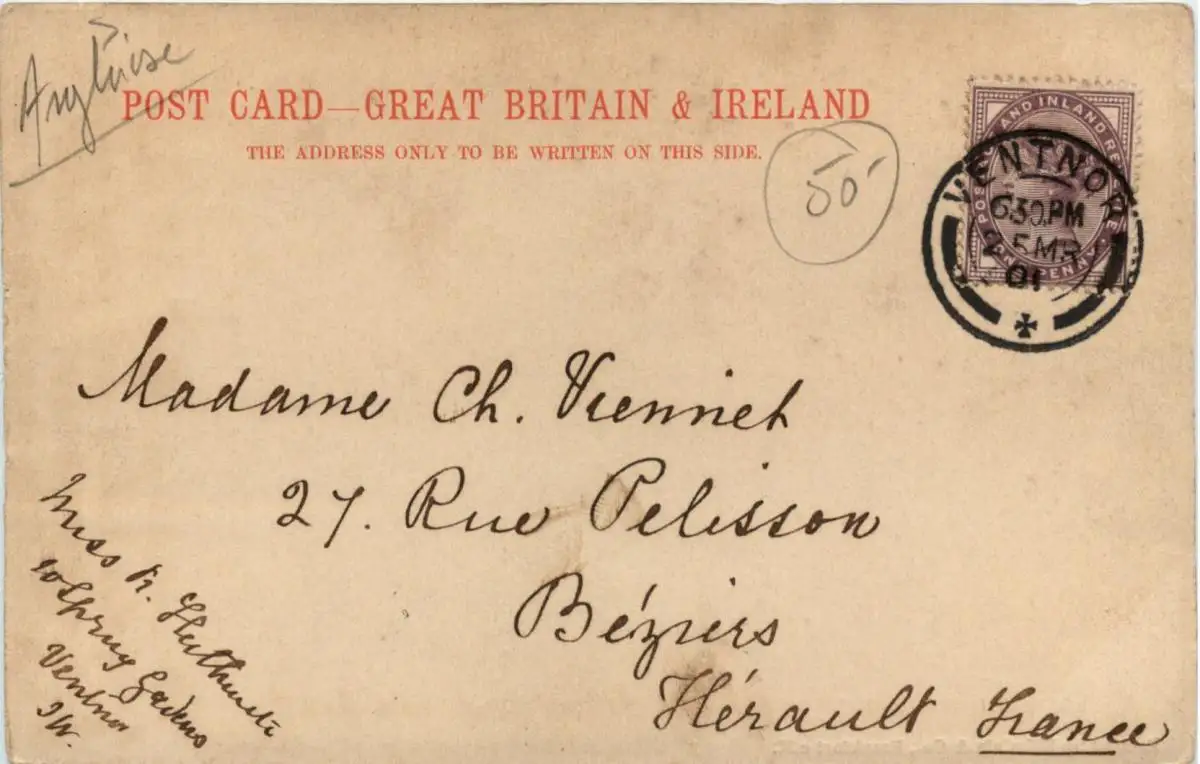 POST CARD—GREAT BRITAIN & IRELAND
THE ADDRESS ONLY TO BE WRITTEN ON THIS SIDE.
50-
POSTAGE AND INLAND REVENUE
ONE PENNY
VENTNOR
630PM
25MR
01
Madame Ch. Viennet
27. Rue Pelisson
Béziers
Hérault France
Miss K.
10 Spring Gardens
Ventnor
IW.